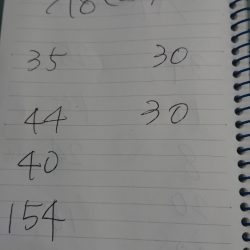 35 30
44 30
40
154